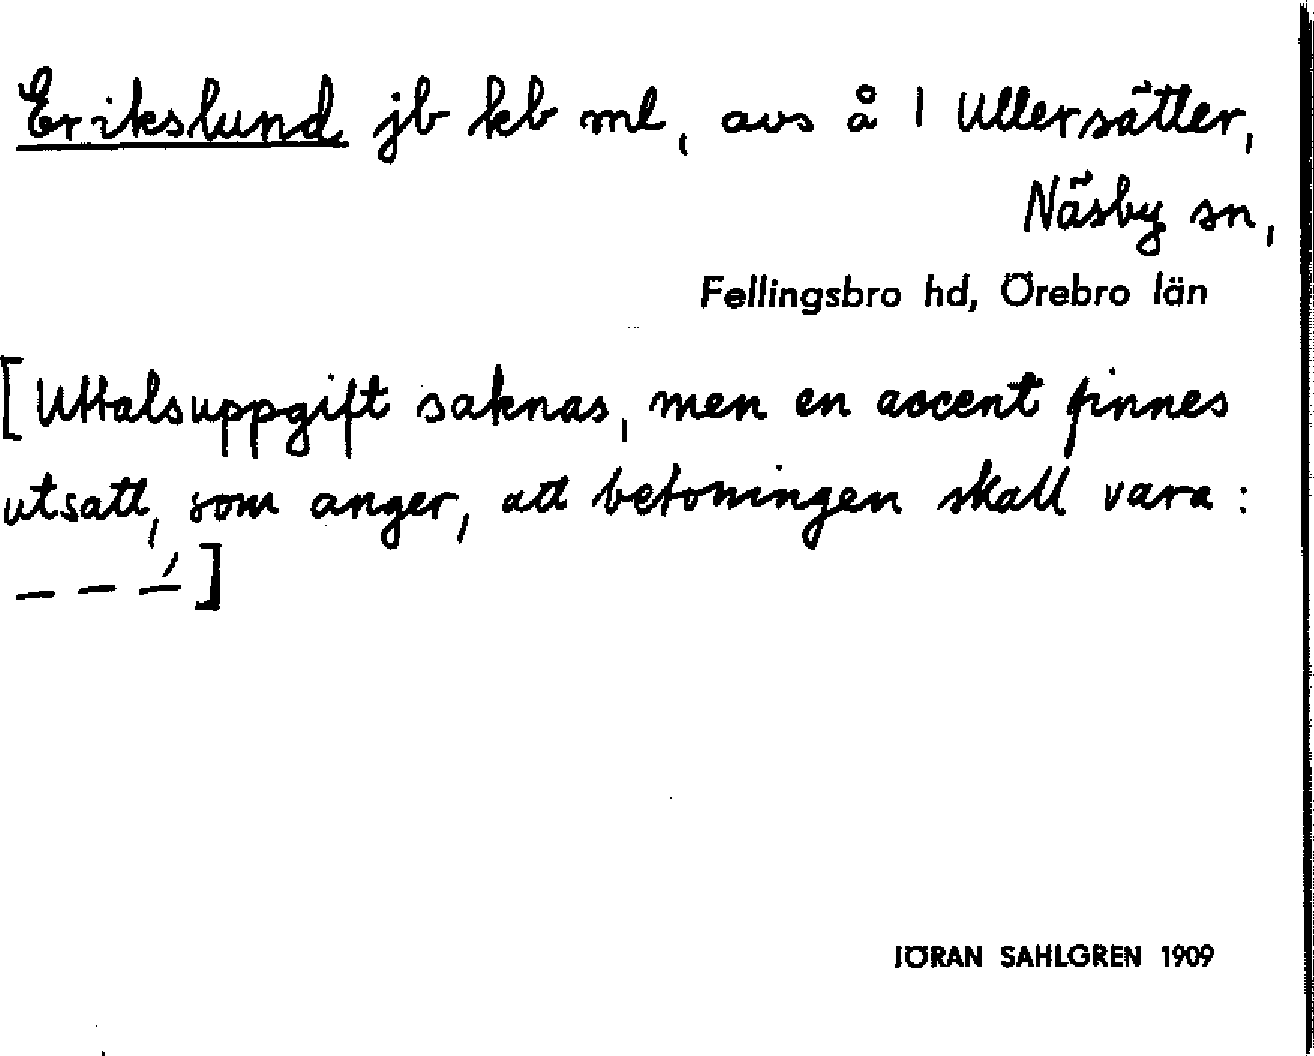 Erikslund jb kb ml, avs å 1 Ullersätter,
Näsby sn,
Fellingsbro hd, Örebro län
[Uttalsuppgift saknas, men en accent finnes
utsatt, som anger, att betoningen skall vara:
– – –́]
JÖRAN SAHLGREN 1909